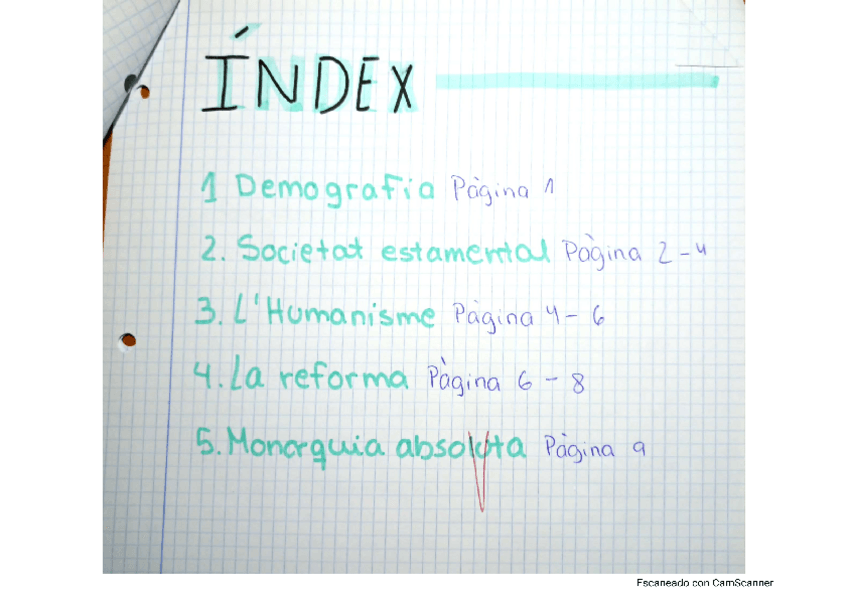 ÍNDEX
1 Demografia Pàgina 1
2. Societat estamental Pàgina 2-4
3. L'Humanisme Pàgina 4-6
4. La reforma Pàgina 6-8
5. Monarquia absoluta Pàgina 9
Escaneado con CamScanner